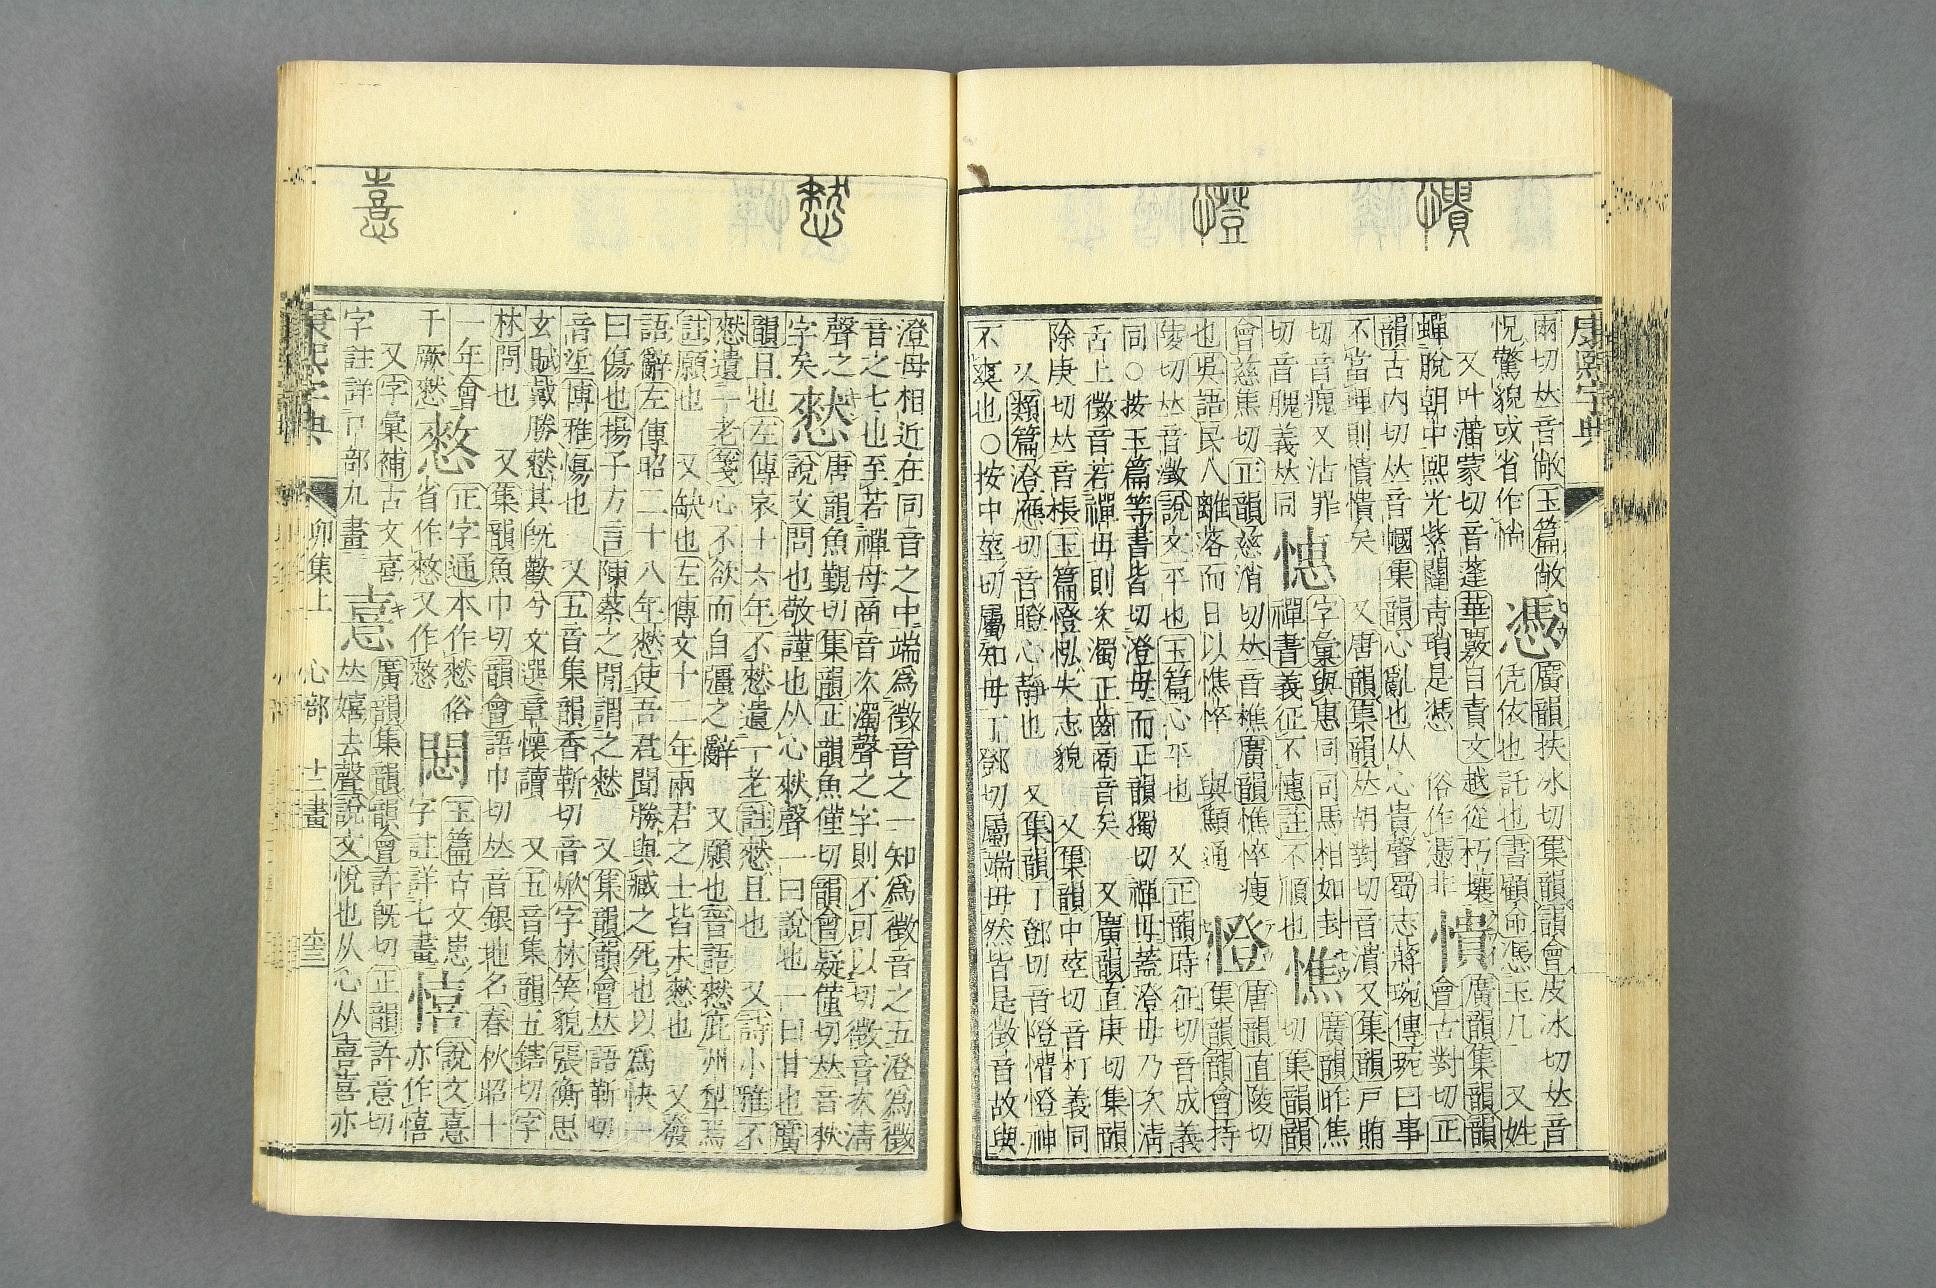 憒
憕
康熙字典
爾切𠀤音敞玉篇敞
怳驚貌或省作惝
憑
廣韻扶冰切集韻韻會皮冰切𠀤音
凭依也託也書顧命憑玉几 又姓
又叶蒲蒙切音蓬華覈自責文越從朽壤
蟬蛻朝中熙光紫闥靑瑣是憑 俗作憑非
憒
廣韻集韻韻
會古對切正
韻古內切𠀤音幗集韻心亂也从心貴聲蜀志蔣琬傳琬曰事
不當理則憒憒矣 又唐韻集韻𠀤胡對切音潰又集韻戸賄
切音瘣又沾罪
切音膭義𠀤同
憓
字彙與惠同司馬相如封
禪書義征不憓註不順也
憔
廣韻昨焦
切集韻韻
會慈焦切正韻慈消切𠀤音樵廣韻憔悴瘦
也吳語民人離落而日以憔悴 與顦通
憕
唐韻直陵切
集韻韻會持
陵切𠀤音澂說文平也玉篇心平也 又正韻時征切音成義
同○按玉篇等書皆切澄母而正韻獨切禪母蓋澄母乃次淸
舌上徵音若禪母則次濁正齒商音矣 又廣韻直庚切集韻
除庚切𠀤音棖玉篇憕㲾失志貌 又集韻中莖切音朾義同
又類篇澄應切音瞪心靜也 又集韻丁鄧切音隥懵憕神
不爽也○按中莖切屬知母丁鄧切屬端母然皆是徵音故與
憖
憙
澄母相近在同音之中端爲徵音之一知爲徵音之五澄爲徵
音之七也至若禪母商音次濁聲之字則不可以切徵音次淸
聲之
字矣
憖
唐韻魚覲切集韻正韻魚僅切韻會疑僅切𠀤音猌
說文問也敬謹也从心猌聲一曰說也一曰甘也廣
韻且也左傳哀十六年不憖遺一老註憖且也 又詩小雅不
憖遺一老箋心不欲而自彊之辭 又願也晉語憖庇州犁焉
註願也 又缺也左傳文十二年兩君之士皆未憖也 又發
語辭左傳昭二十八年憖使吾君聞勝與臧之死也以爲快
曰傷也揚子方言陳蔡之閒謂之憖 又集韻韻會𠀤語靳切
音垽博雅傷也 又五音集韻香靳切音焮字林笑貌張衡思
玄賦戴勝憖其旣歡兮文選章懷讀 又五音集韻五鎋切字
林問也 又集韻魚巾切韻會語巾切𠀤音銀地名春秋昭十
一年會
于厥憖
憗
正字通本作憖俗
省作憗又作憖
憫
玉篇古文㥸
字註詳七畫
憘
說文憙
亦作憘
又字彙補古文喜
字註詳口部九畫
憙
廣韻集韻韻會許旣切正韻許意切
𠀤嬉去聲說文悅也从心从喜喜亦
康熙字典
卯集上
心部
十二畫